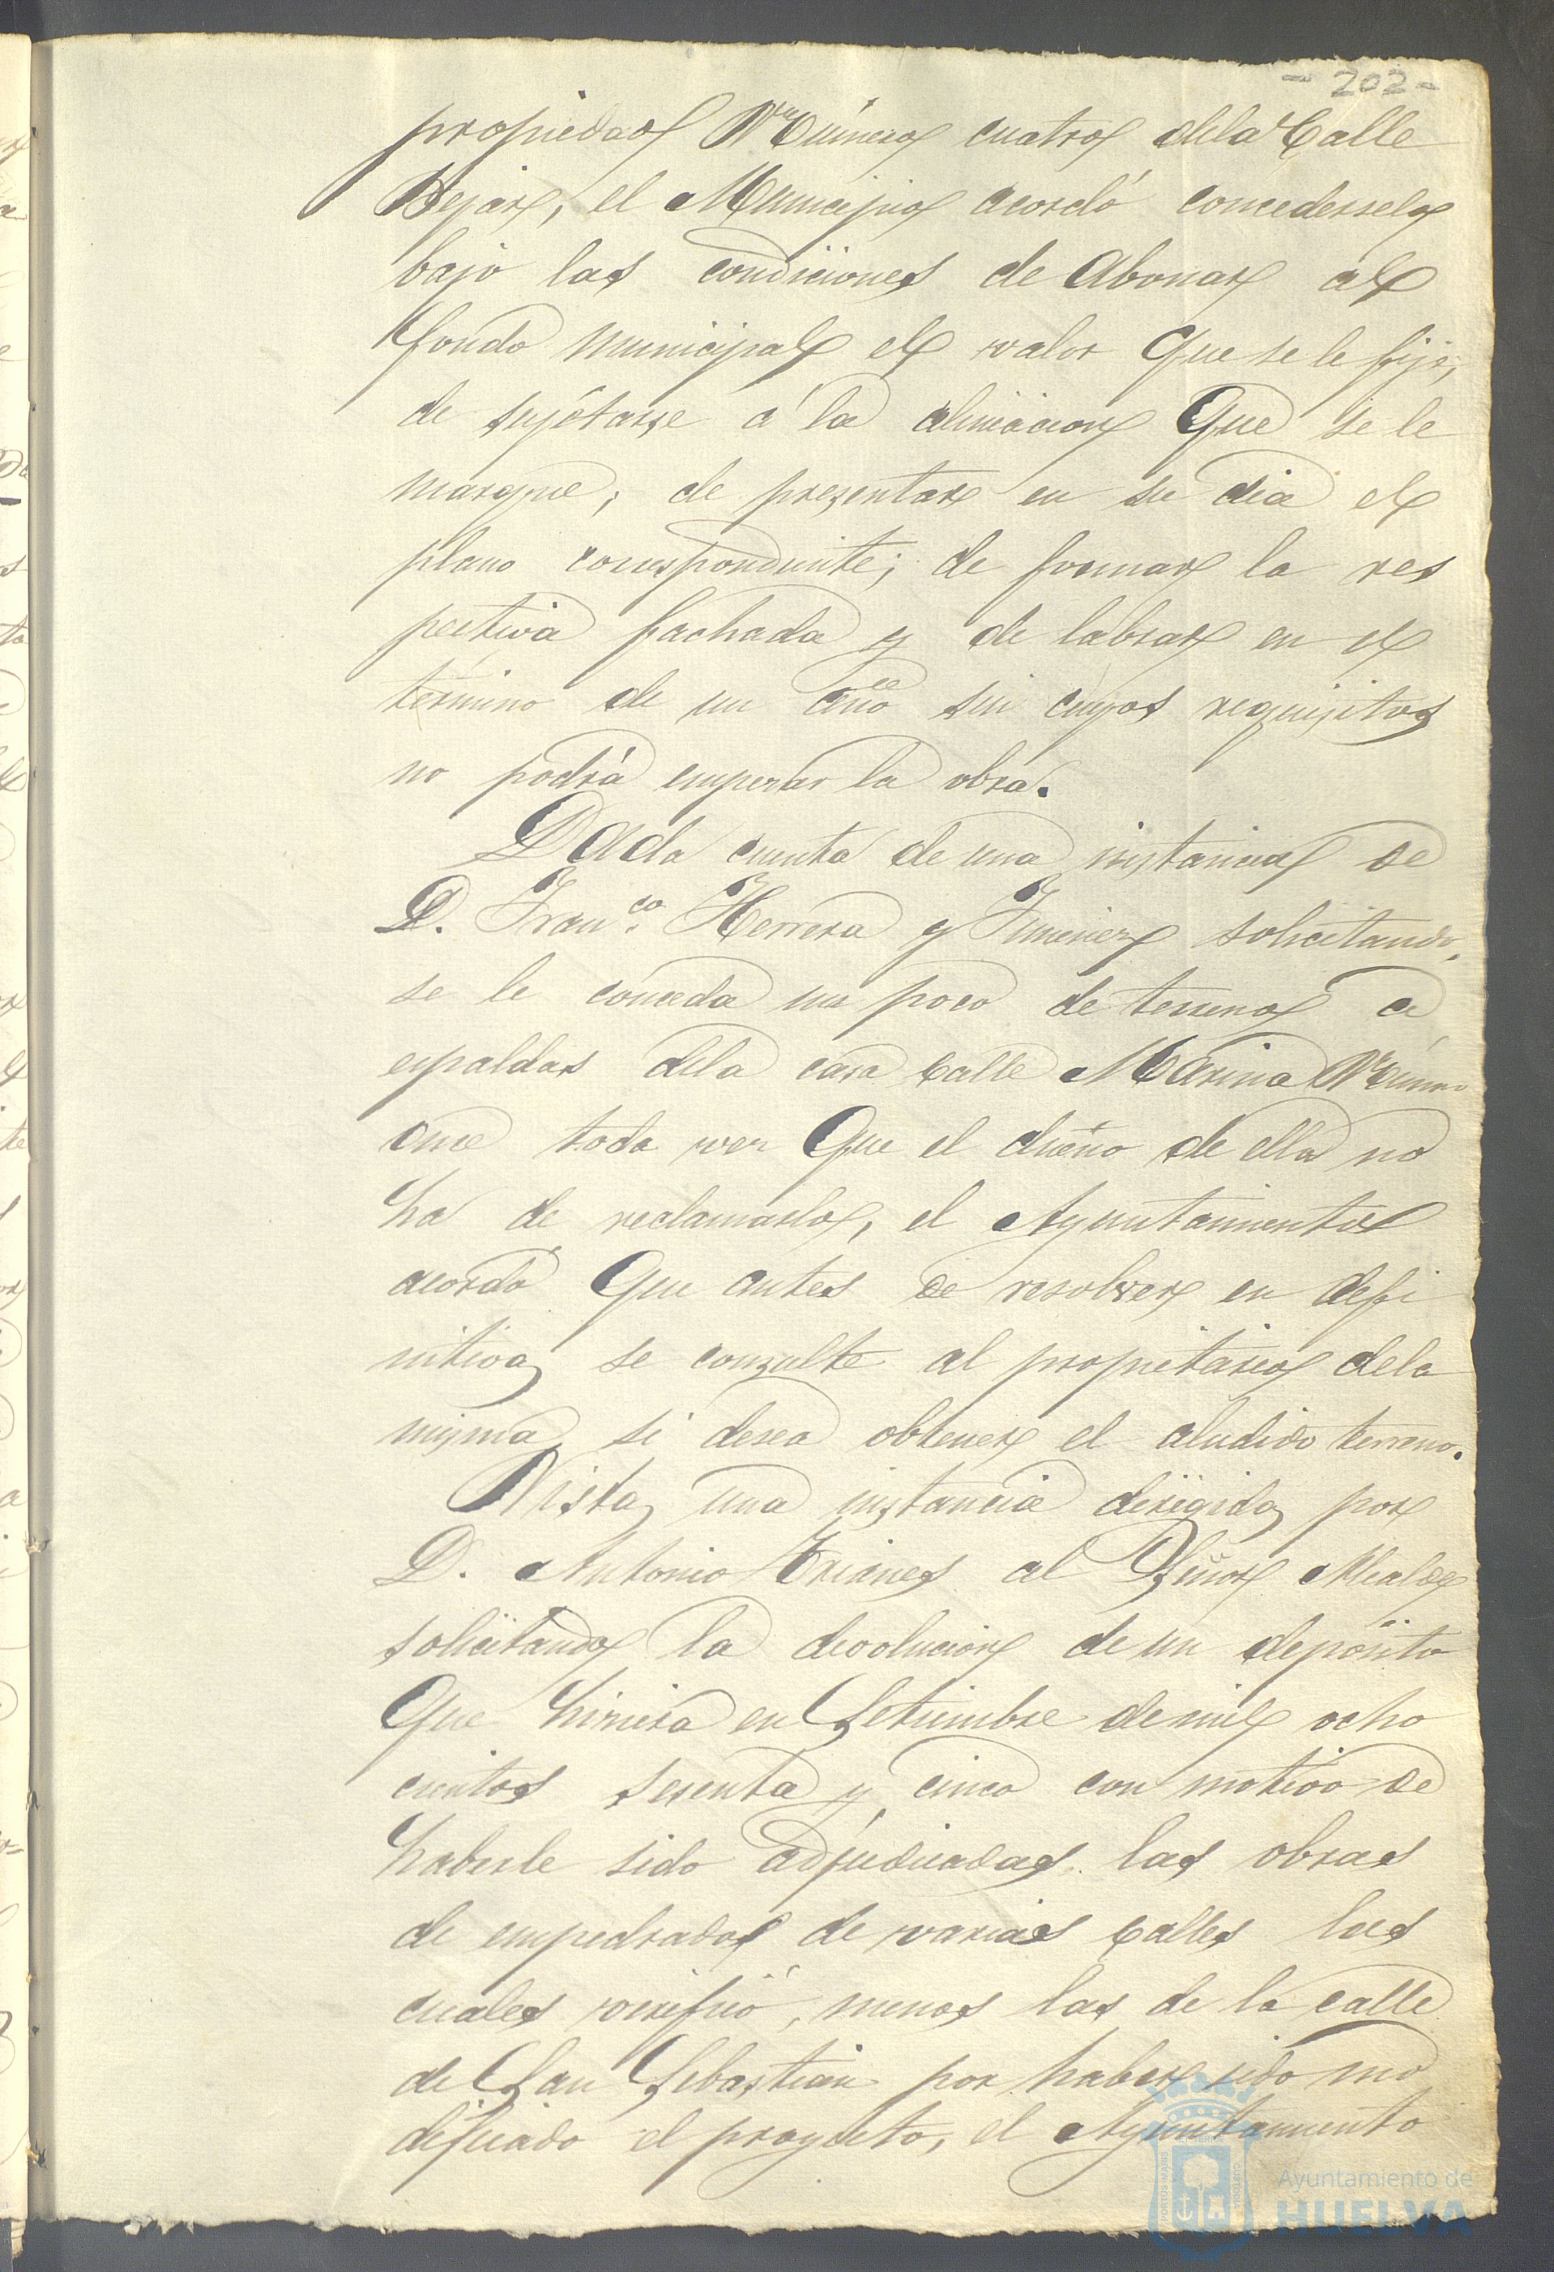 - 202 -
propiedad Número cuatro dela Calle
Bejar, el Municipio acordó concederselo
bajo las condiciones de abonar al
fondo municipal el valor que se le fije;
de sujetarse á la alineacion que se le
marque; de presentar en su dia el
plano correspondiente; de formar la res
pectiva fachada y de labrar en el
término de un año sin cuyos requisitos
no podrá empezar la obra.
Dada cuenta de una instancia de
D. Franco. Herrera y Jimenez solicitando
se le conceda un poco de terreno a
espaldas dela casa Calle Marina Número
once toda vez que el dueño de ella no
ha de reclamarlo, el Ayuntamiento
acordó que antes de resolver en defi
nitiva se consulte al propietario dela
misma si desea obtener el aludido terreno.
Vista una instancia dirigida por
D. Antonio Trianes al Señor Alcalde
solicitando la devolucion de un depósito
que hiciera en Setiembre de mil ocho
cientos sesenta y cinco con motivo de
haberle sido adjudicadas las obras
de empedrado de varias calles las
cuales verificó, menos las de la calle
de San Sebastian por haber sido mo
dificado el proyecto, el Ayuntamiento
Ayuntamiento de
HUELVA